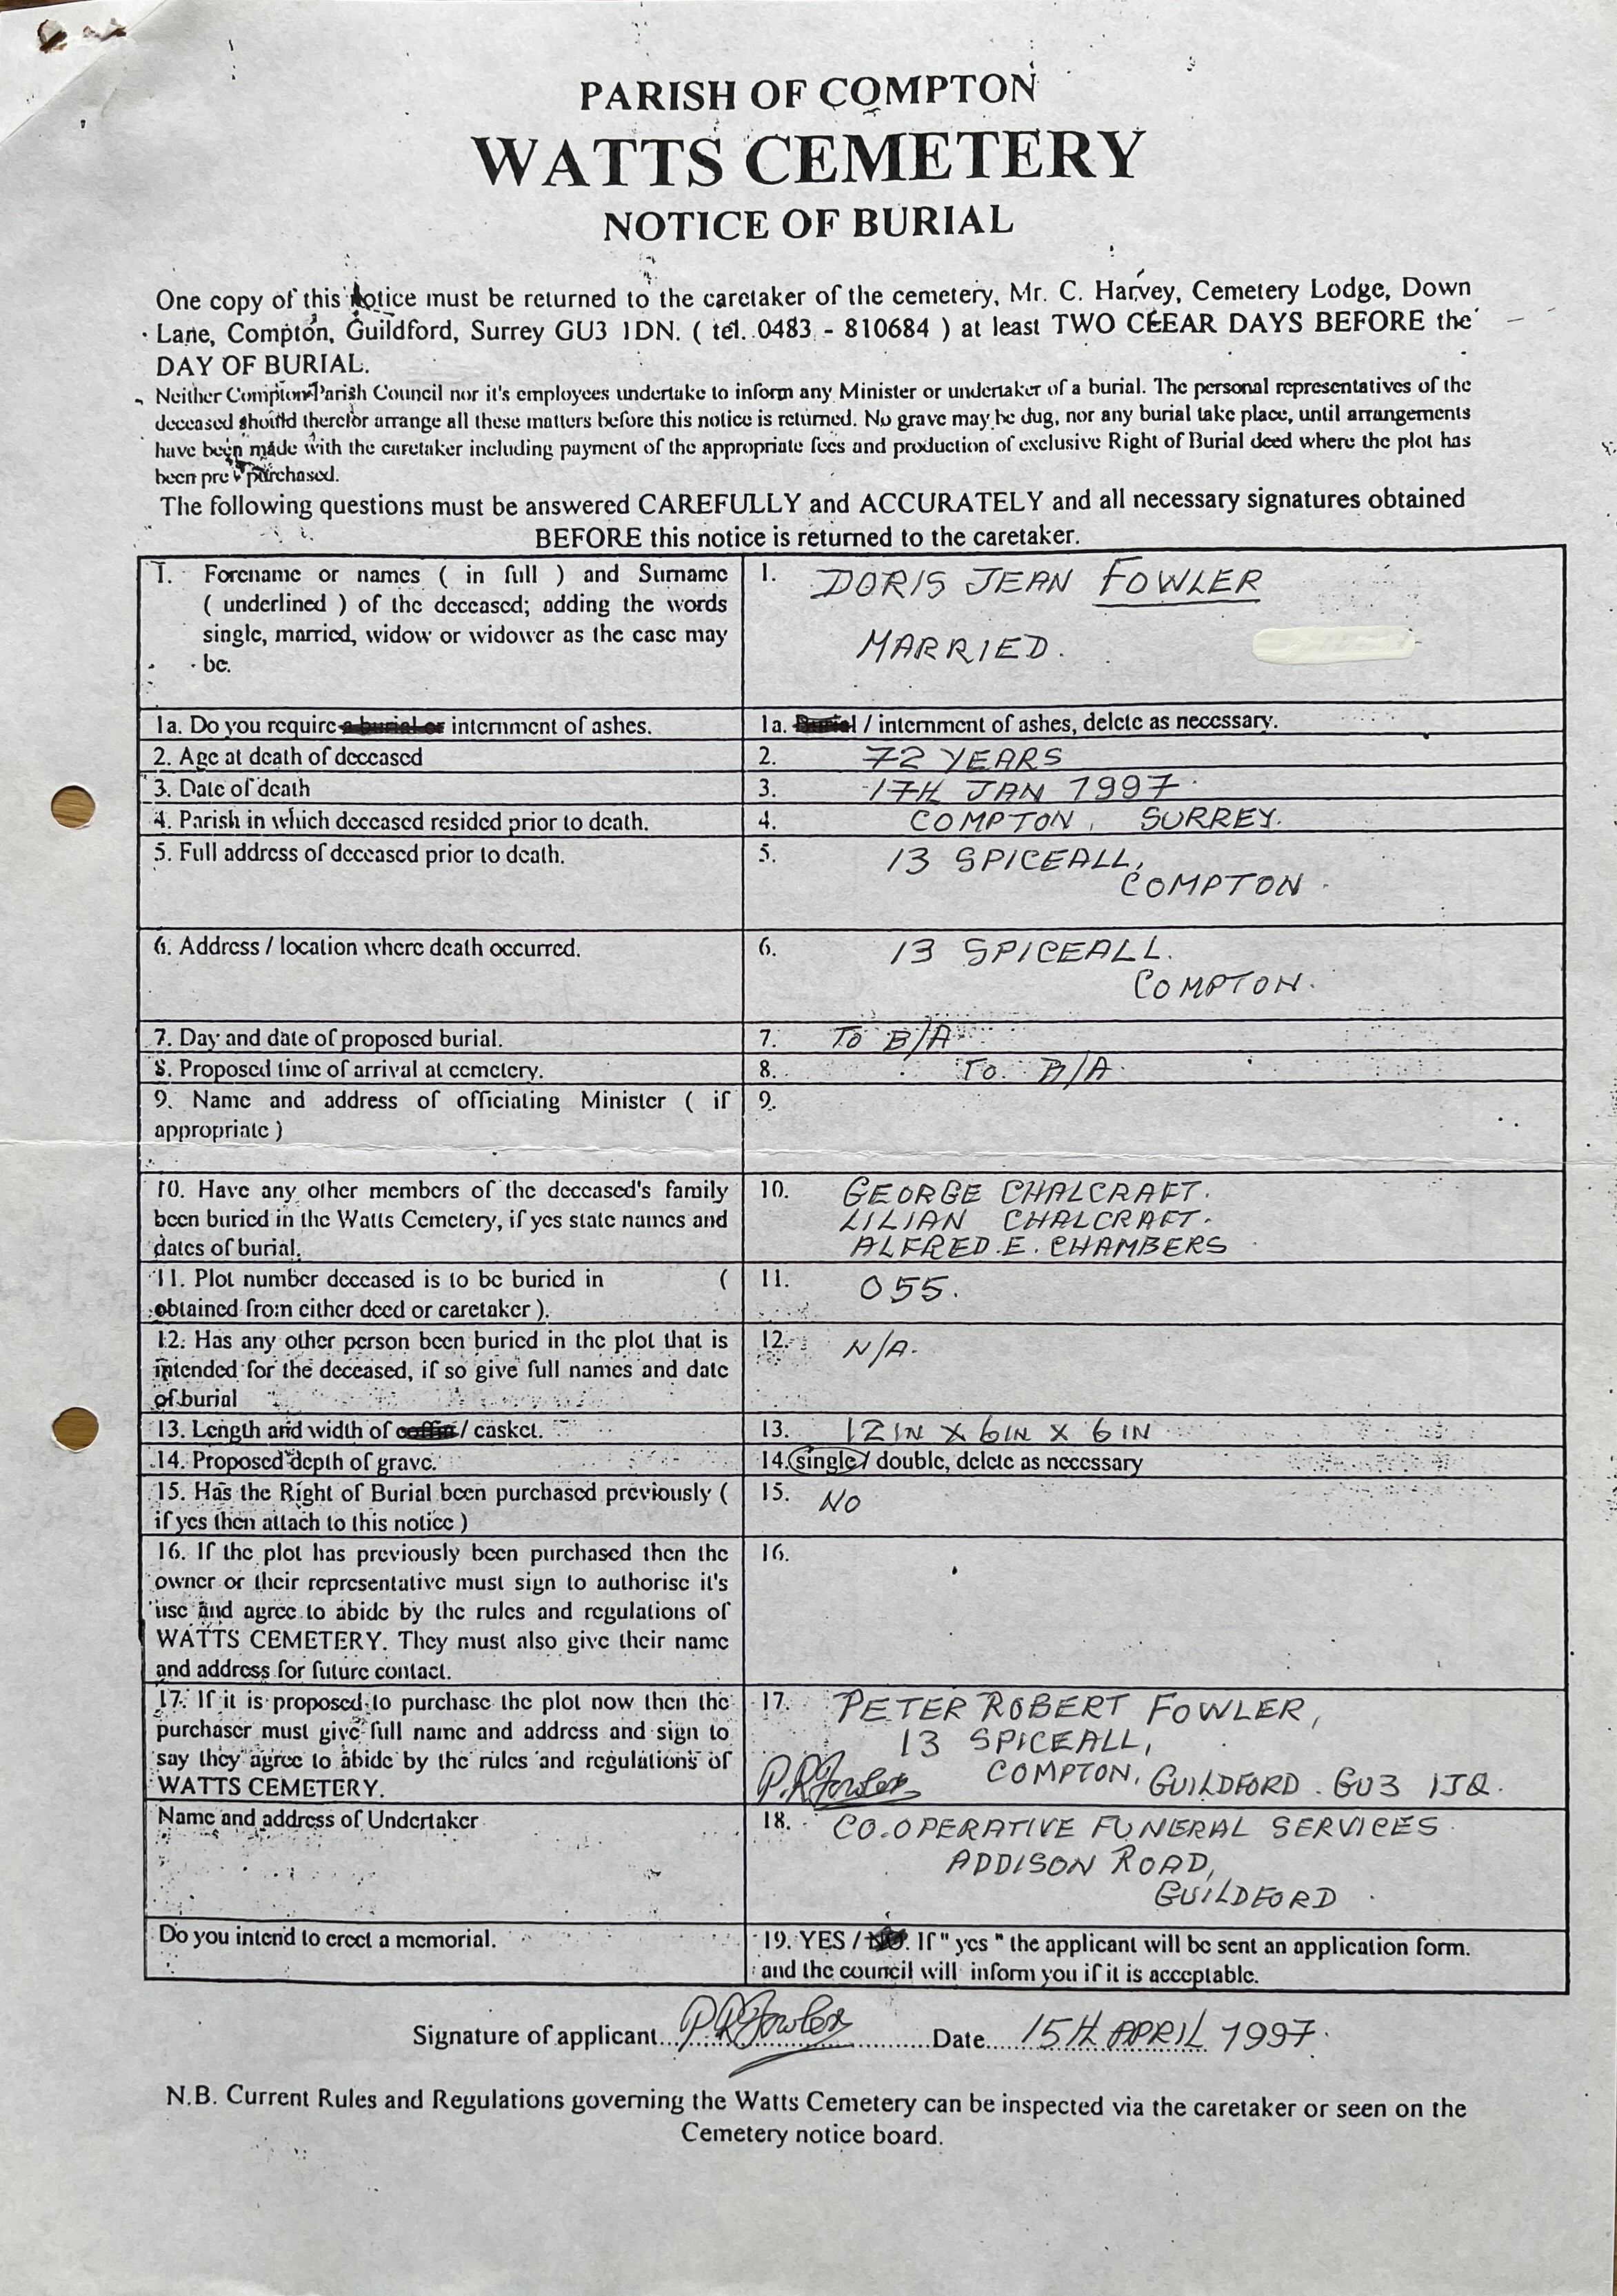 PARISH OF COMPTON
WATTS CEMETERY
NOTICE OF BURIAL
One copy of this notice must be returned to the caretaker of the cemetery, Mr. C. Harvey, Cemetery Lodge, Down
Lane, Compton, Guildford, Surrey GU3 1DN. ( tel. 0483 - 810684 ) at least TWO CLEAR DAYS BEFORE the
DAY OF BURIAL.
Neither Compton Parish Council nor it's employees undertake to inform any Minister or undertaker of a burial. The personal representatives of the
deceased should therefor arrange all these matters before this notice is returned. No grave may be dug, nor any burial take place, until arrangements
have been made with the caretaker including payment of the appropriate fees and production of exclusive Right of Burial deed where the plot has
been pre purchased.
The following questions must be answered CAREFULLY and ACCURATELY and all necessary signatures obtained
BEFORE this notice is returned to the caretaker.
1. Forename or names ( in full ) and Surname
( underlined ) of the deceased; adding the words
single, married, widow or widower as the case may
be.
1. DORIS JEAN FOWLER
MARRIED.
1a. Do you require a burial or internment of ashes.
1a. Burial / internment of ashes, delete as necessary.
2. Age at death of deceased
2. 72 YEARS
3. Date of death
3. 17TH JAN 1997
4. Parish in which deceased resided prior to death.
4. COMPTON, SURREY.
5. Full address of deceased prior to death.
5. 13 SPICEALL,
COMPTON.
6. Address / location where death occurred.
6. 13 SPICEALL.
COMPTON.
7. Day and date of proposed burial.
7. To B/A
8. Proposed time of arrival at cemetery.
8. To B/A
9. Name and address of officiating Minister ( if
appropriate )
9.
10. Have any other members of the deceased's family
been buried in the Watts Cemetery, if yes state names and
dates of burial.
10. GEORGE CHALCRAFT.
LILIAN CHALCRAFT.
ALFRED.E. CHAMBERS
11. Plot number deceased is to be buried in (
obtained from either deed or caretaker ).
11. 055.
12. Has any other person been buried in the plot that is
intended for the deceased, if so give full names and date
of burial
12. N/A.
13. Length and width of coffin / casket.
13. 12IN X 6IN X 6IN
14. Proposed depth of grave.
14. single / double, delete as necessary
15. Has the Right of Burial been purchased previously (
if yes then attach to this notice )
15. NO
16. If the plot has previously been purchased then the
owner or their representative must sign to authorise it's
use and agree to abide by the rules and regulations of
WATTS CEMETERY. They must also give their name
and address for future contact.
16.
17. If it is proposed to purchase the plot now then the
purchaser must give full name and address and sign to
say they agree to abide by the rules and regulations of
WATTS CEMETERY.
17. PETER ROBERT FOWLER,
13 SPICEALL,
COMPTON, GUILDFORD. GU3 1JQ.
P.R.Fowler
Name and address of Undertaker
18. CO.OPERATIVE FUNERAL SERVICES
ADDISON ROAD,
GUILDFORD
Do you intend to erect a memorial.
19. YES / NO. If " yes " the applicant will be sent an application form.
and the council will inform you if it is acceptable.
Signature of applicant...P.R.Fowler...Date...15TH APRIL 1997.
N.B. Current Rules and Regulations governing the Watts Cemetery can be inspected via the caretaker or seen on the
Cemetery notice board.